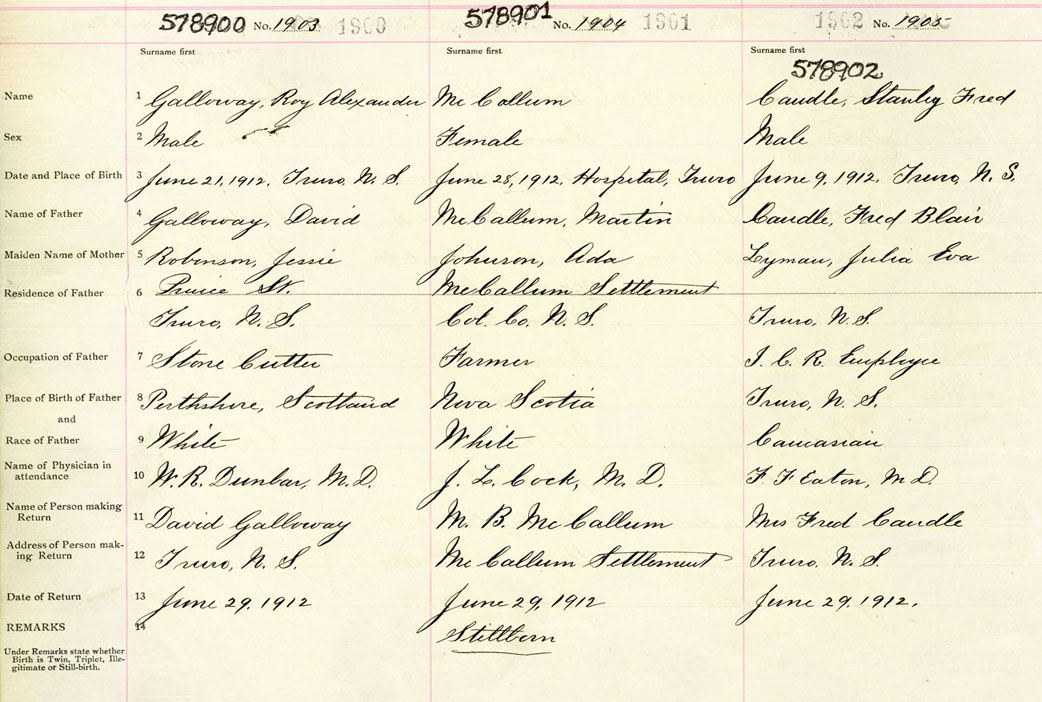 578900 No. 1903 1900 578901 No. 1904 1901 1902 No. 1905
Surname first Surname first Surname first
578902
Name 1 Galloway, Roy Alexander McCallum Caudle, Stanley Fred
Sex 2 Male Female Male
Date and Place of Birth 3 June 21, 1912. Truro, N. S. June 28, 1912. Hospital, Truro June 9, 1912. Truro, N. S.
Name of Father 4 Galloway, David McCallum, Martin Caudle, Fred Blair
Maiden Name of Mother 5 Robinson, Jessie Johnson, Ada Lyman, Julia Eva
Residence of Father 6 St. McCallum Settlement
Truro, N. S. Col. Co. N. S. Truro, N. S.
Occupation of Father 7 Stone Cutter Farmer I. C. R. Employee
Place of Birth of Father 8 Perthshire, Scotland Nova Scotia Truro, N. S.
and
Race of Father 9 White White Caucasian
Name of Physician in
attendance 10 W. R. Dunbar, M. D. J. L. Cock, M. D. F F Eaton, M D.
Name of Person making
Return 11 David Galloway M. B. McCallum Mrs Fred Caudle
Address of Person mak-
ing Return 12 Truro, N. S. McCallum Settlement Truro, N. S.
Date of Return 13 June 29, 1912 June 29, 1912 June 29, 1912.
REMARKS 14 Stillborn
Under Remarks state whether
Birth is Twin, Triplet, Ille-
gitimate or Still-birth.